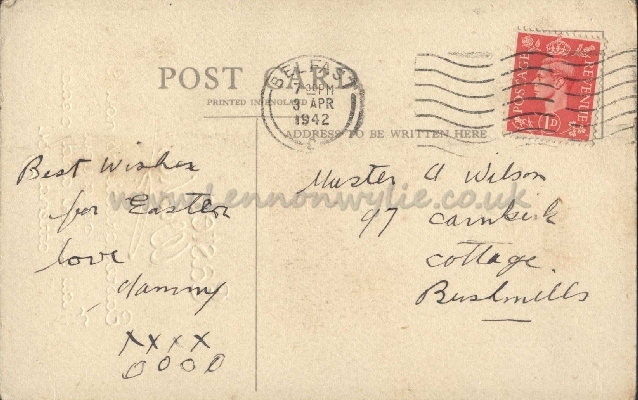 POST CARD
PRINTED IN ENGLAND
ADDRESS TO BE WRITTEN HERE
BELFAST
7 PM
3 APR
1942
POSTAGE
REVENUE
1D
www.lennonwylie.co.uk
Best Wishes
for Easter
love
XXXX
OOOO
Master A Wilson
97 Carnkirk
Cottage.
Bushmills